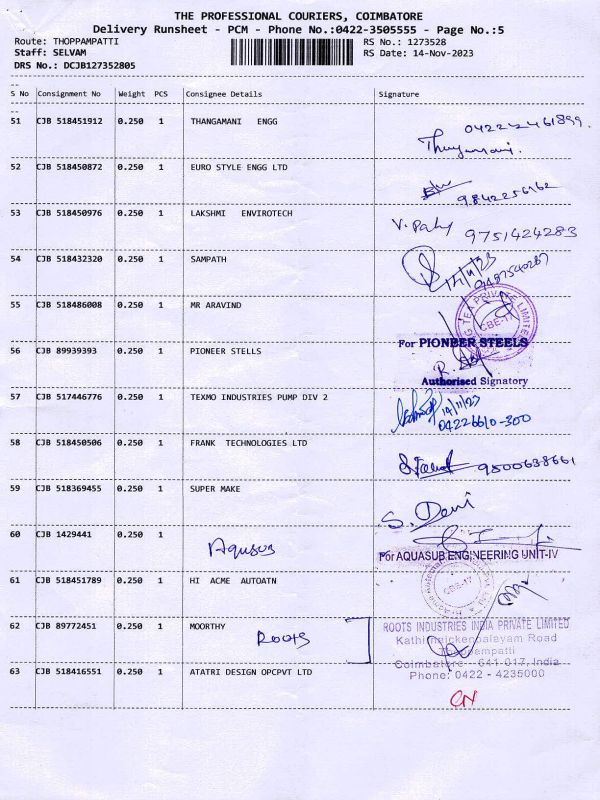 THE PROFESSIONAL COURIERS, COIMBATORE
Delivery Runsheet - PCM - Phone No.:0422-3505555 - Page No.:5
Route: THOPPAMPATTI RS No.: 1273528
Staff: SELVAM RS Date: 14-Nov-2023
DRS No.: DCJB127352805
S No Consignment No Weight PCS Consignee Details Signature
51 CJB 518451912 0.250 1 THANGAMANI ENGG
52 CJB 518450872 0.250 1 EURO STYLE ENGG LTD
9842256162
53 CJB 518450976 0.250 1 LAKSHMI ENVIROTECH
9751424283
54 CJB 518432320 0.250 1 SAMPATH
14/11/23
55 CJB 518486008 0.250 1 MR ARAVIND
CBE-17
For PIONEER STEELS
56 CJB 89939393 0.250 1 PIONEER STELLS
Authorised Signatory
57 CJB 517446776 0.250 1 TEXMO INDUSTRIES PUMP DIV 2
14/11/23
04226610-300
58 CJB 518450506 0.250 1 FRANK TECHNOLOGIES LTD
9500638661
59 CJB 518369455 0.250 1 SUPER MAKE
S. Devi
60 CJB 1429441 0.250 1
Aqusub
For AQUASUB ENGINEERING UNIT-IV
61 CJB 518451789 0.250 1 HI ACME AUTOATN
CBE-17
62 CJB 89772451 0.250 1 MOORTHY
Roots
ROOTS INDUSTRIES INDIA PRIVATE LIMITED
Kathirnaickenpalayam Road
Thoppampatti
Coimbatore - 641 017, India
63 CJB 518416551 0.250 1 ATATRI DESIGN OPCPVT LTD
Phone: 0422 - 4235000